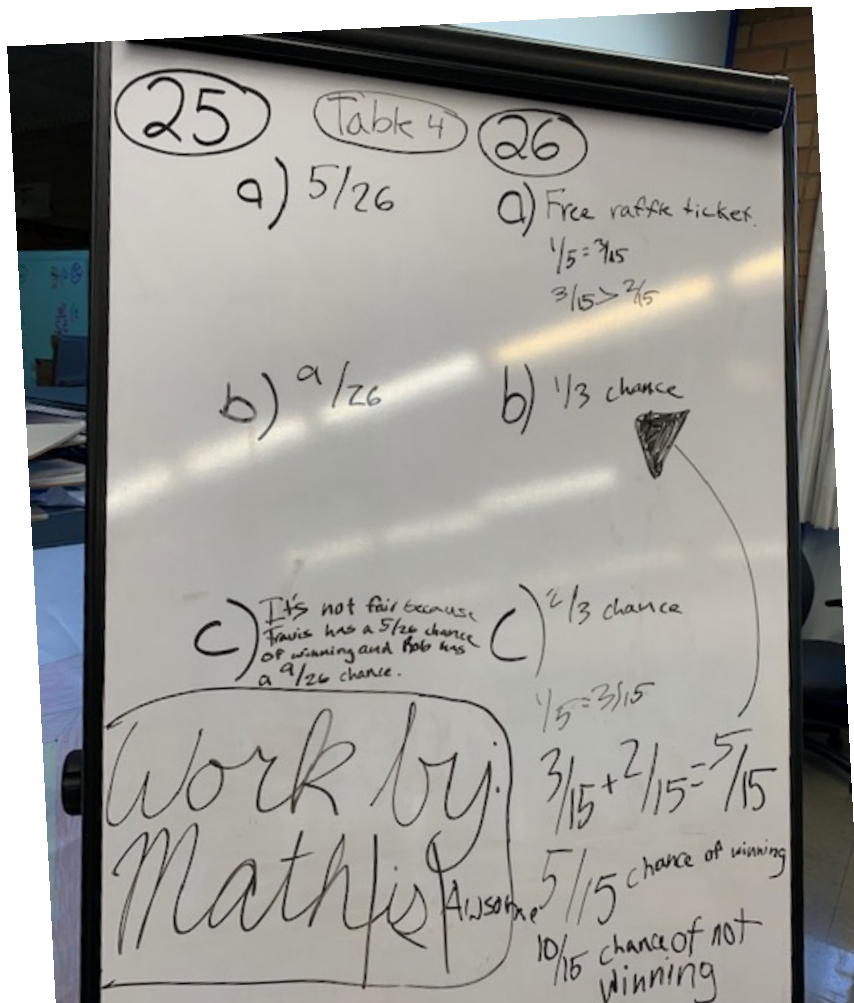 25
a) 5/26
b) 9/26
c) It's not fair because
Travis has a 5/26 chance
of winning and Rob has
a 9/26 chance.
Work by:
Math is Awsome
Table 4
26
a) Free raffle ticket.
1/5 = 3/15
3/15 > 2/15
b) 1/3 chance
c) 2/3 chance
1/5 = 3/15
3/15 + 2/15 = 5/15
5/15 chance of winning
10/15 chance of not
winning